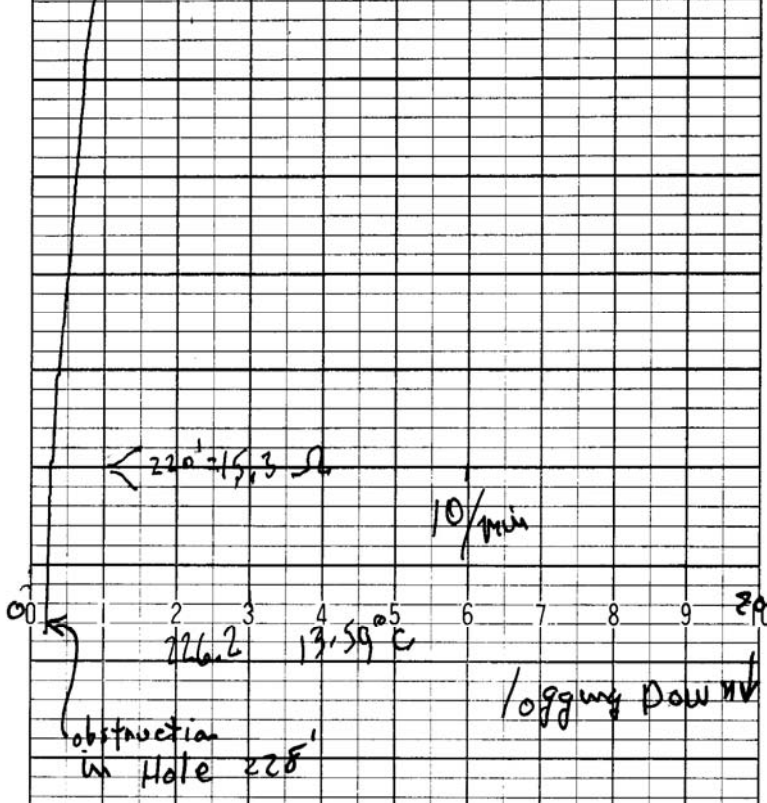 220'=15.3 Ω
10/min
0 1 2 3 4 5 6 7 8 9
226.2 13.59°C
logging Down↓
obstruction
in Hole 228'